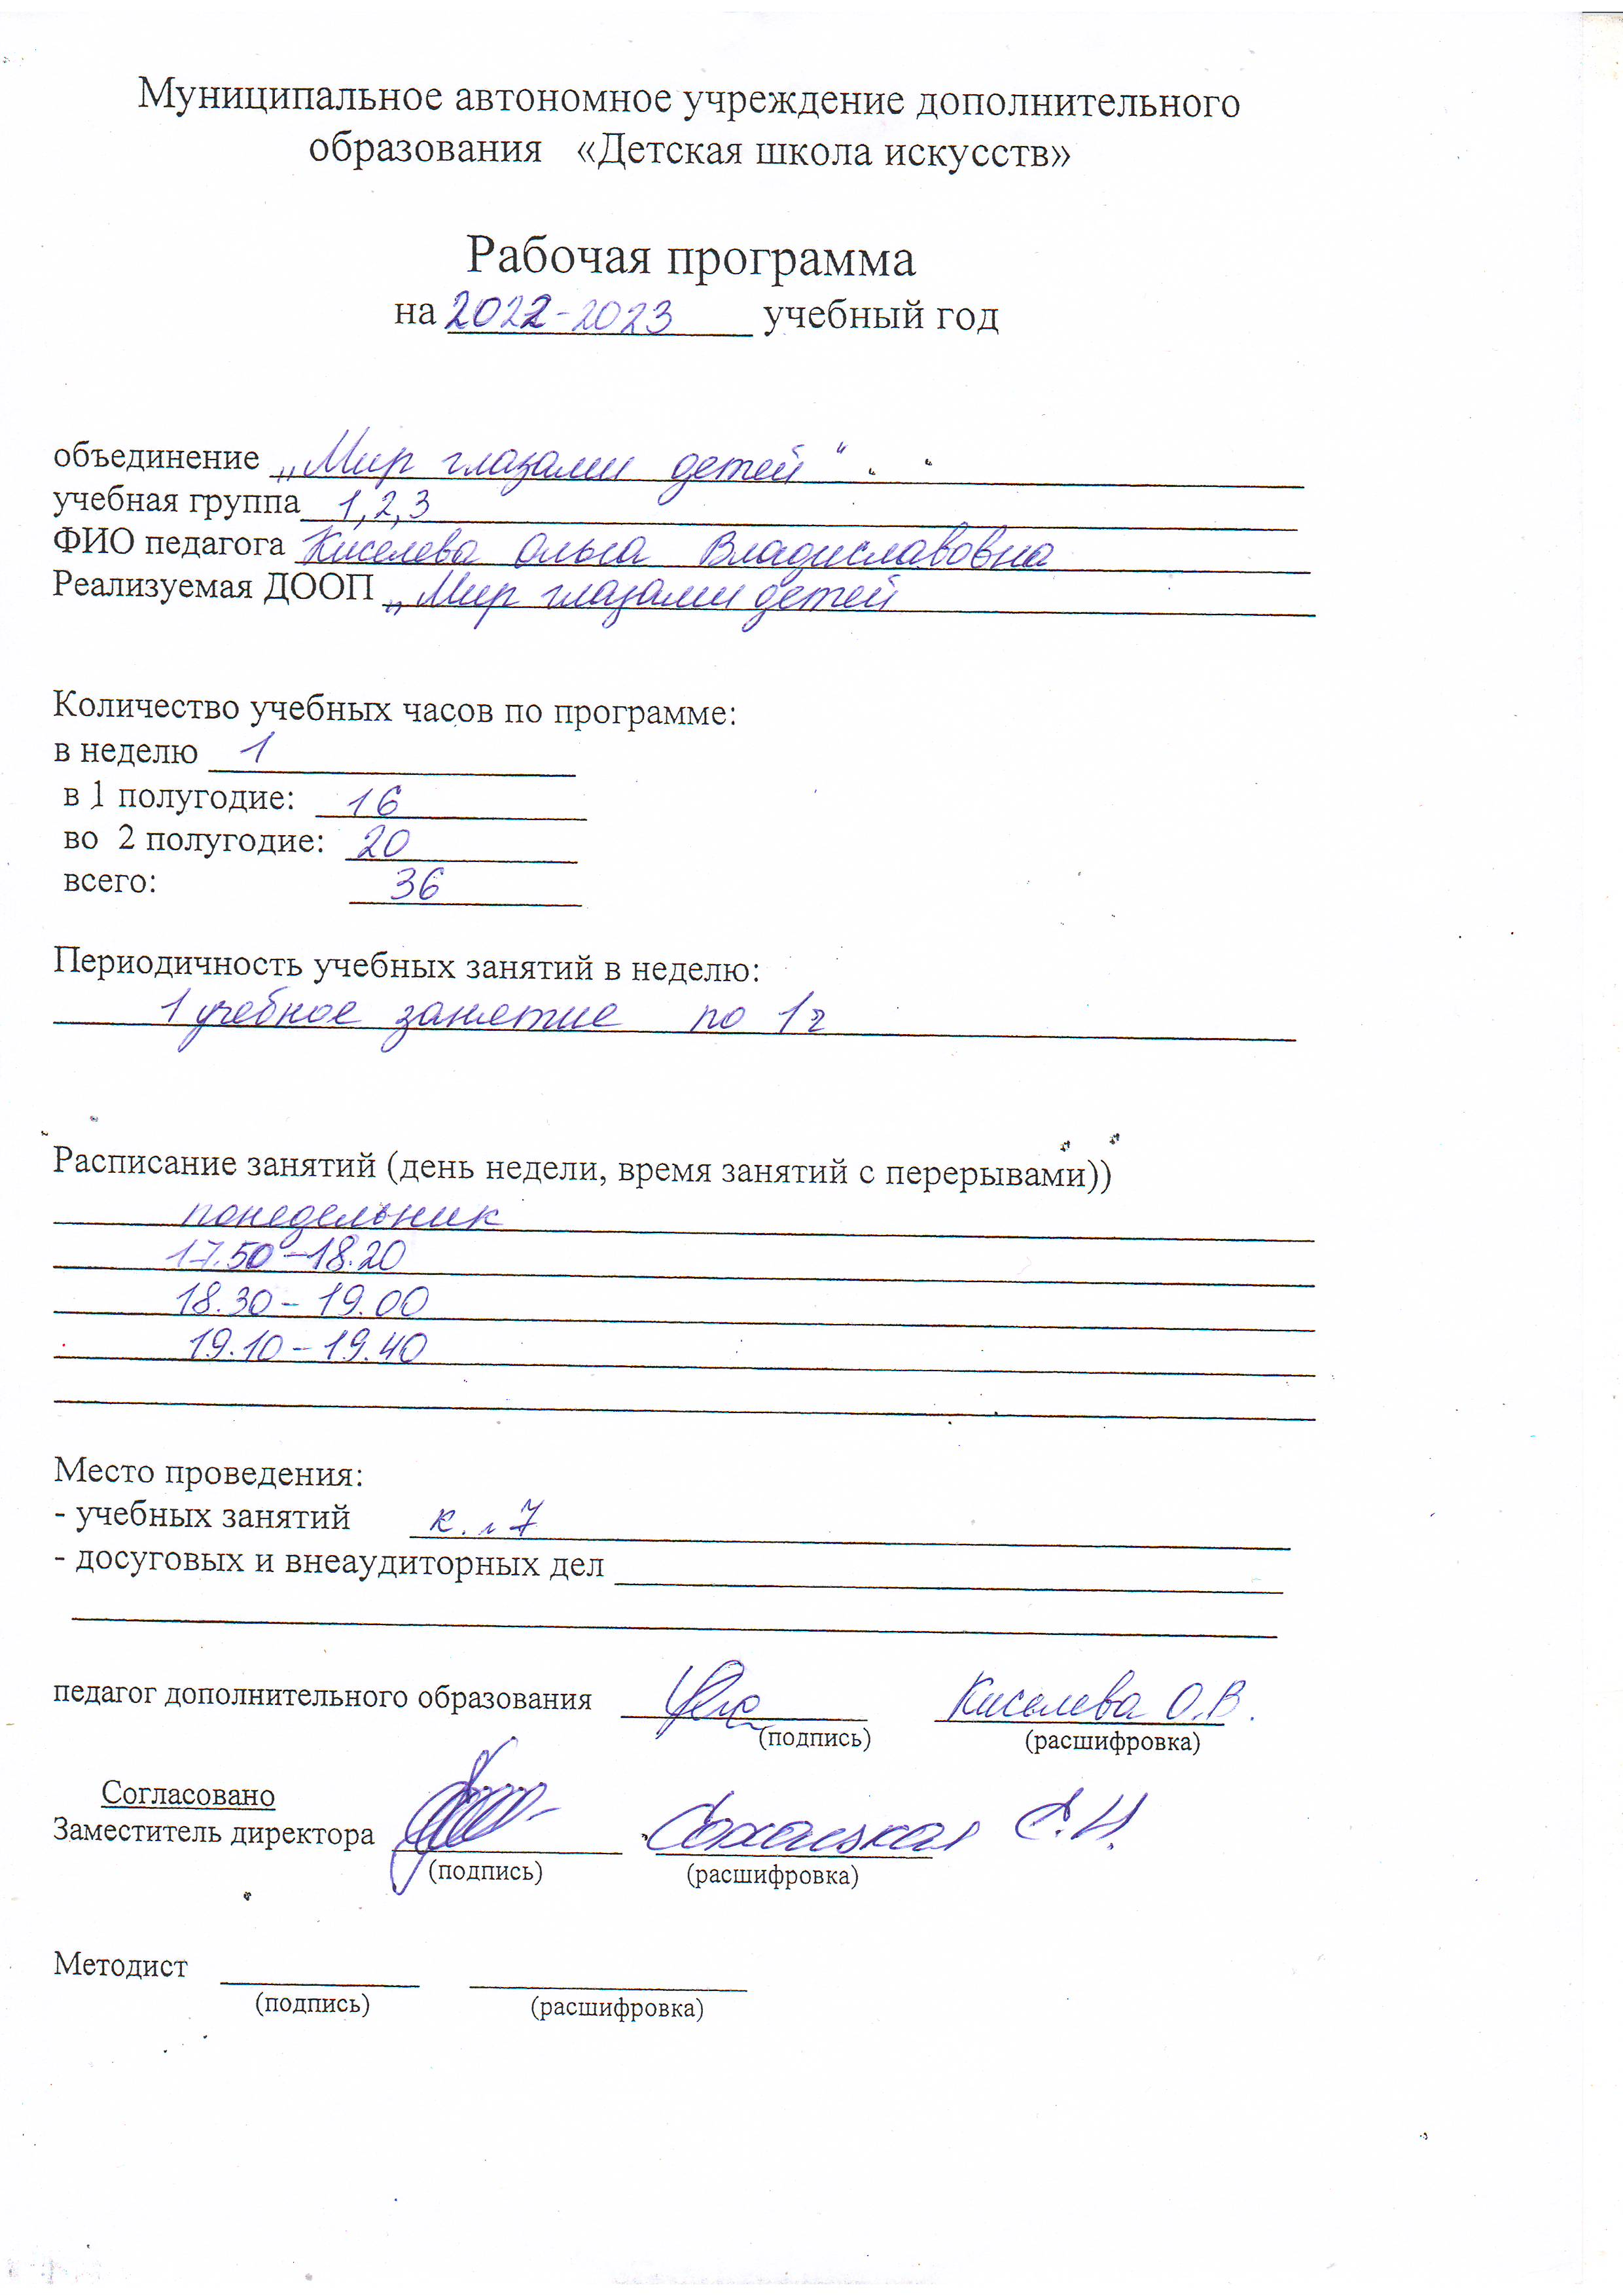 Муниципальное автономное учреждение дополнительного
образования «Детская школа искусств»
Рабочая программа
на 2022-2023 учебный год
объединение „Мир глазами детей“
учебная группа 1,2,3
ФИО педагога Киселева Ольга Владиславовна
Реализуемая ДООП „Мир глазами детей
Количество учебных часов по программе:
в неделю 1
в 1 полугодие: 16
во 2 полугодие: 20
всего: 36
Периодичность учебных занятий в неделю:
1 учебное занятие по 1ч
Расписание занятий (день недели, время занятий с перерывами))
понедельник
17.50-18.20
18.30-19.00
19.10-19.40
Место проведения:
- учебных занятий к. 7
- досуговых и внеаудиторных дел
педагог дополнительного образования Киселева О.В.
(подпись) (расшифровка)
Согласовано
Заместитель директора С.Н.
(подпись) (расшифровка)
Методист
(подпись) (расшифровка)